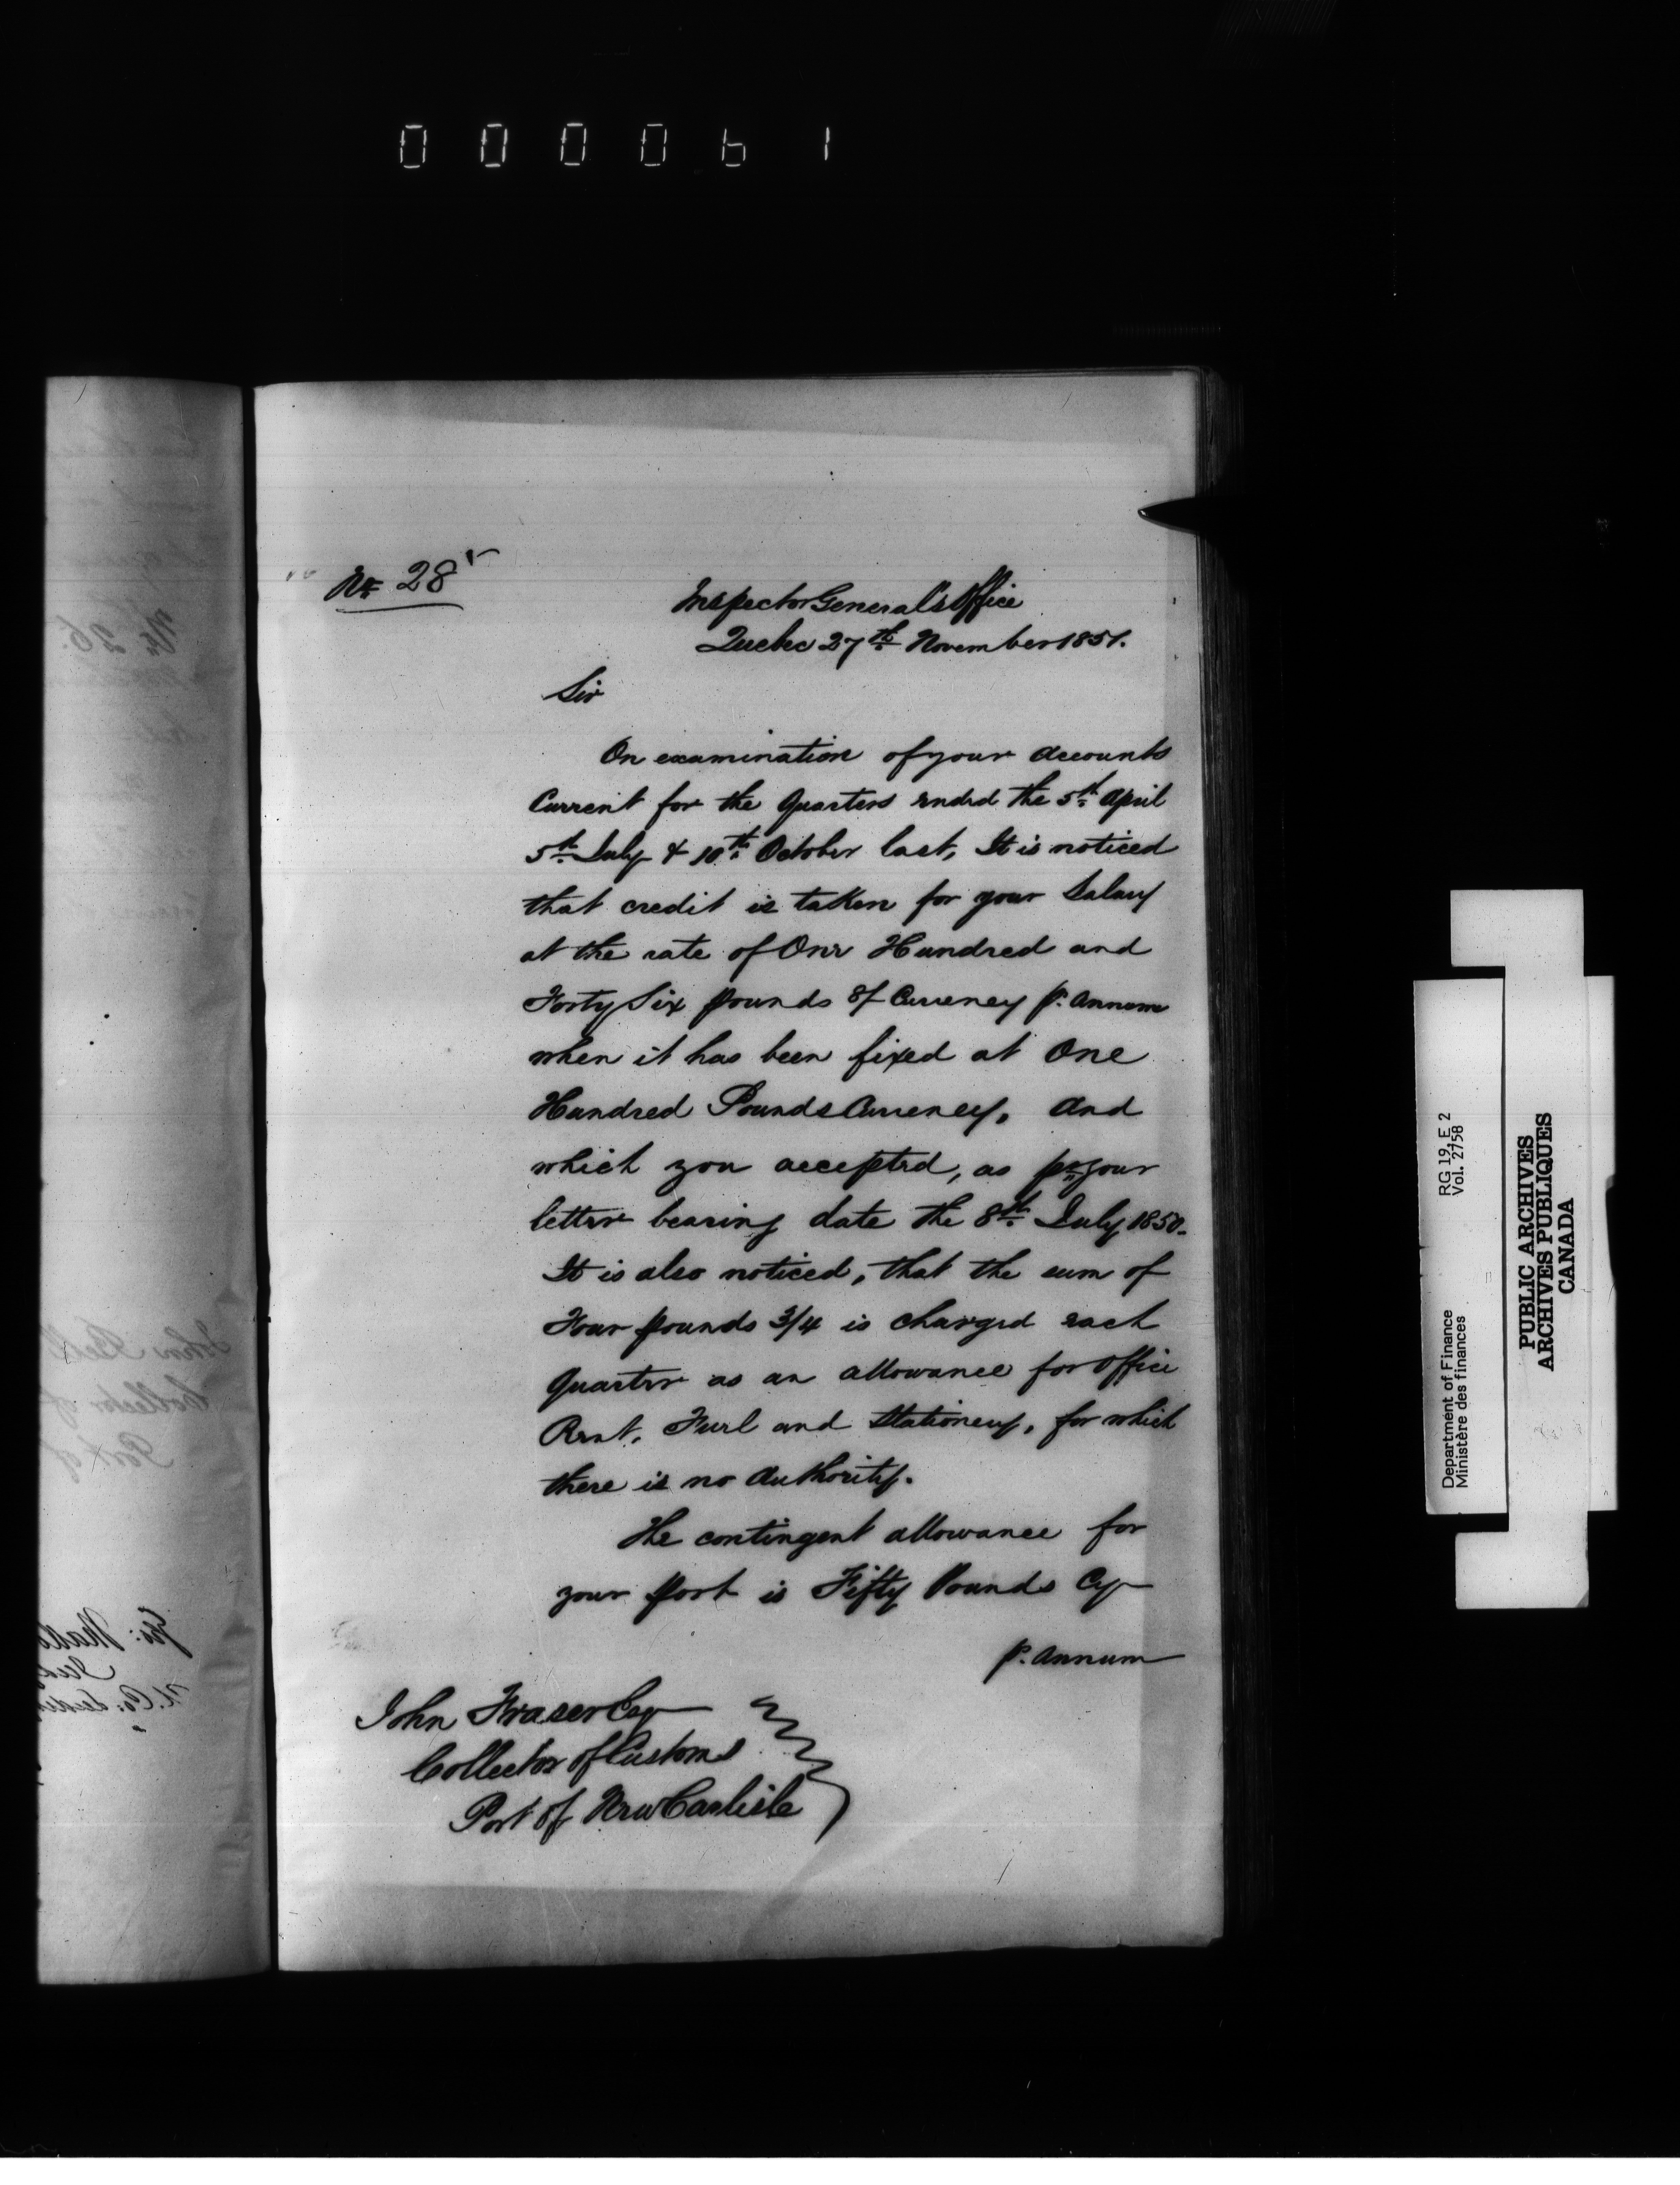 000061
No. 28
Inspector General's Office
Quebec 27th November 1851.
Sir
On examination of your Accounts
Current for the Quarters ended the 5th April
5th July & 10th October last, It is noticed
that credit is taken for your Salary
at the rate of One Hundred and
Forty Six pounds of Currency p. Annum
when it has been fixed at One
Hundred Pounds Currency, and
which you accepted, as pr your
letter bearing date the 8th July 1850.
It is also noticed, that the sum of
Four pounds 3/4 is charged each
Quarter as an allowance for Office
Rent, Fuel and Stationery, for which
there is no Authority.
The contingent allowance for
your port is Fifty Pounds Cy
p. Annum
John Fraser Esq
Collector of Customs
Port of New Carlisle
Department of Finance RG 19, E 2
Ministère des finances Vol. 2758
PUBLIC ARCHIVES
ARCHIVES PUBLIQUES
CANADA